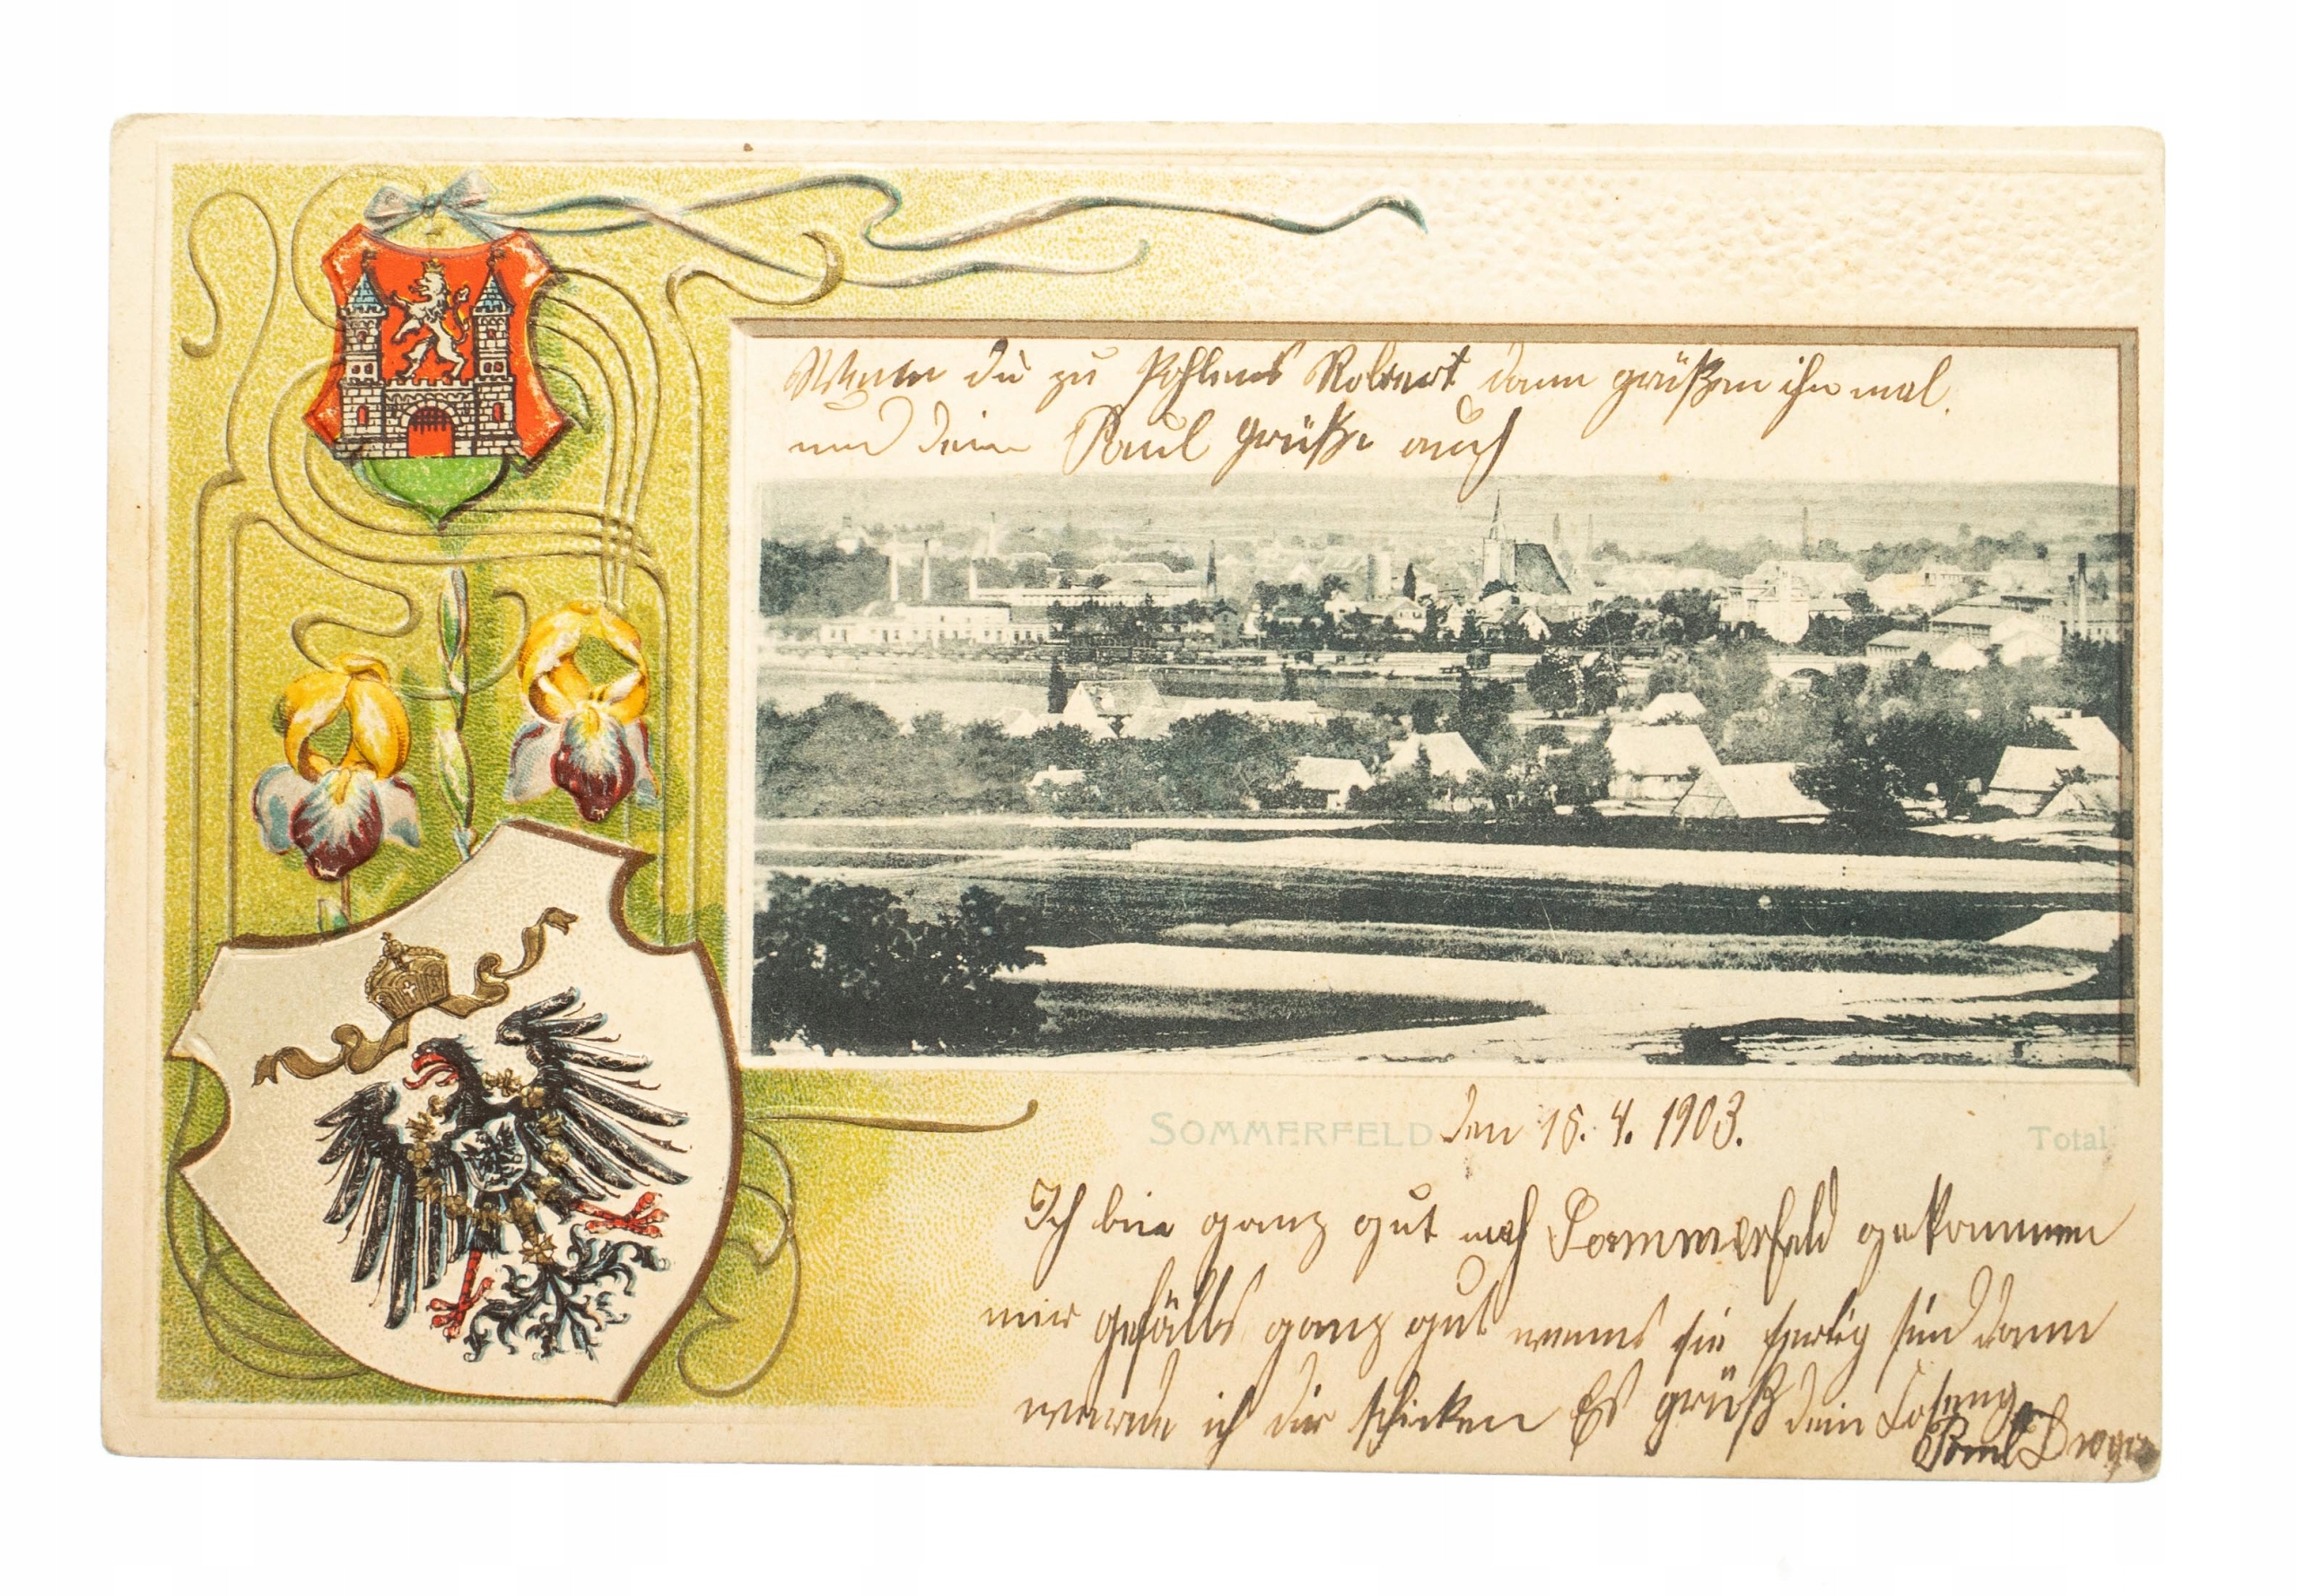 Wenn du zu Pohlens Robert dann grüßen ihn mal.
und dein Paul grüße auch
SOMMERFELD den 15. 4. 1903.
Total
Ich bin ganz gut nach Sommerfeld gekommen
mir gefälls ganz gut wenns sie fertig sind dann
werde ich dir schicken Es grüß dein
Paul